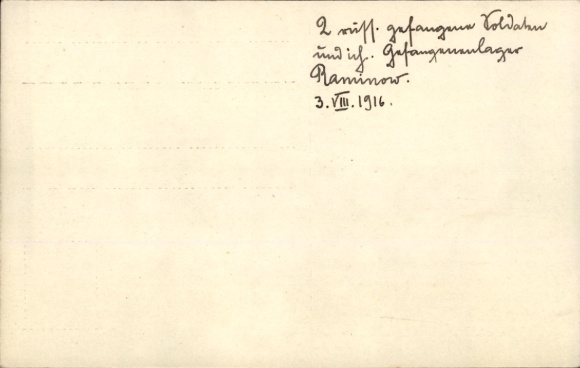 2 russ. gefangene Soldaten
und ich. Gefangenenlager
Raminow.
3.VIII.1916.